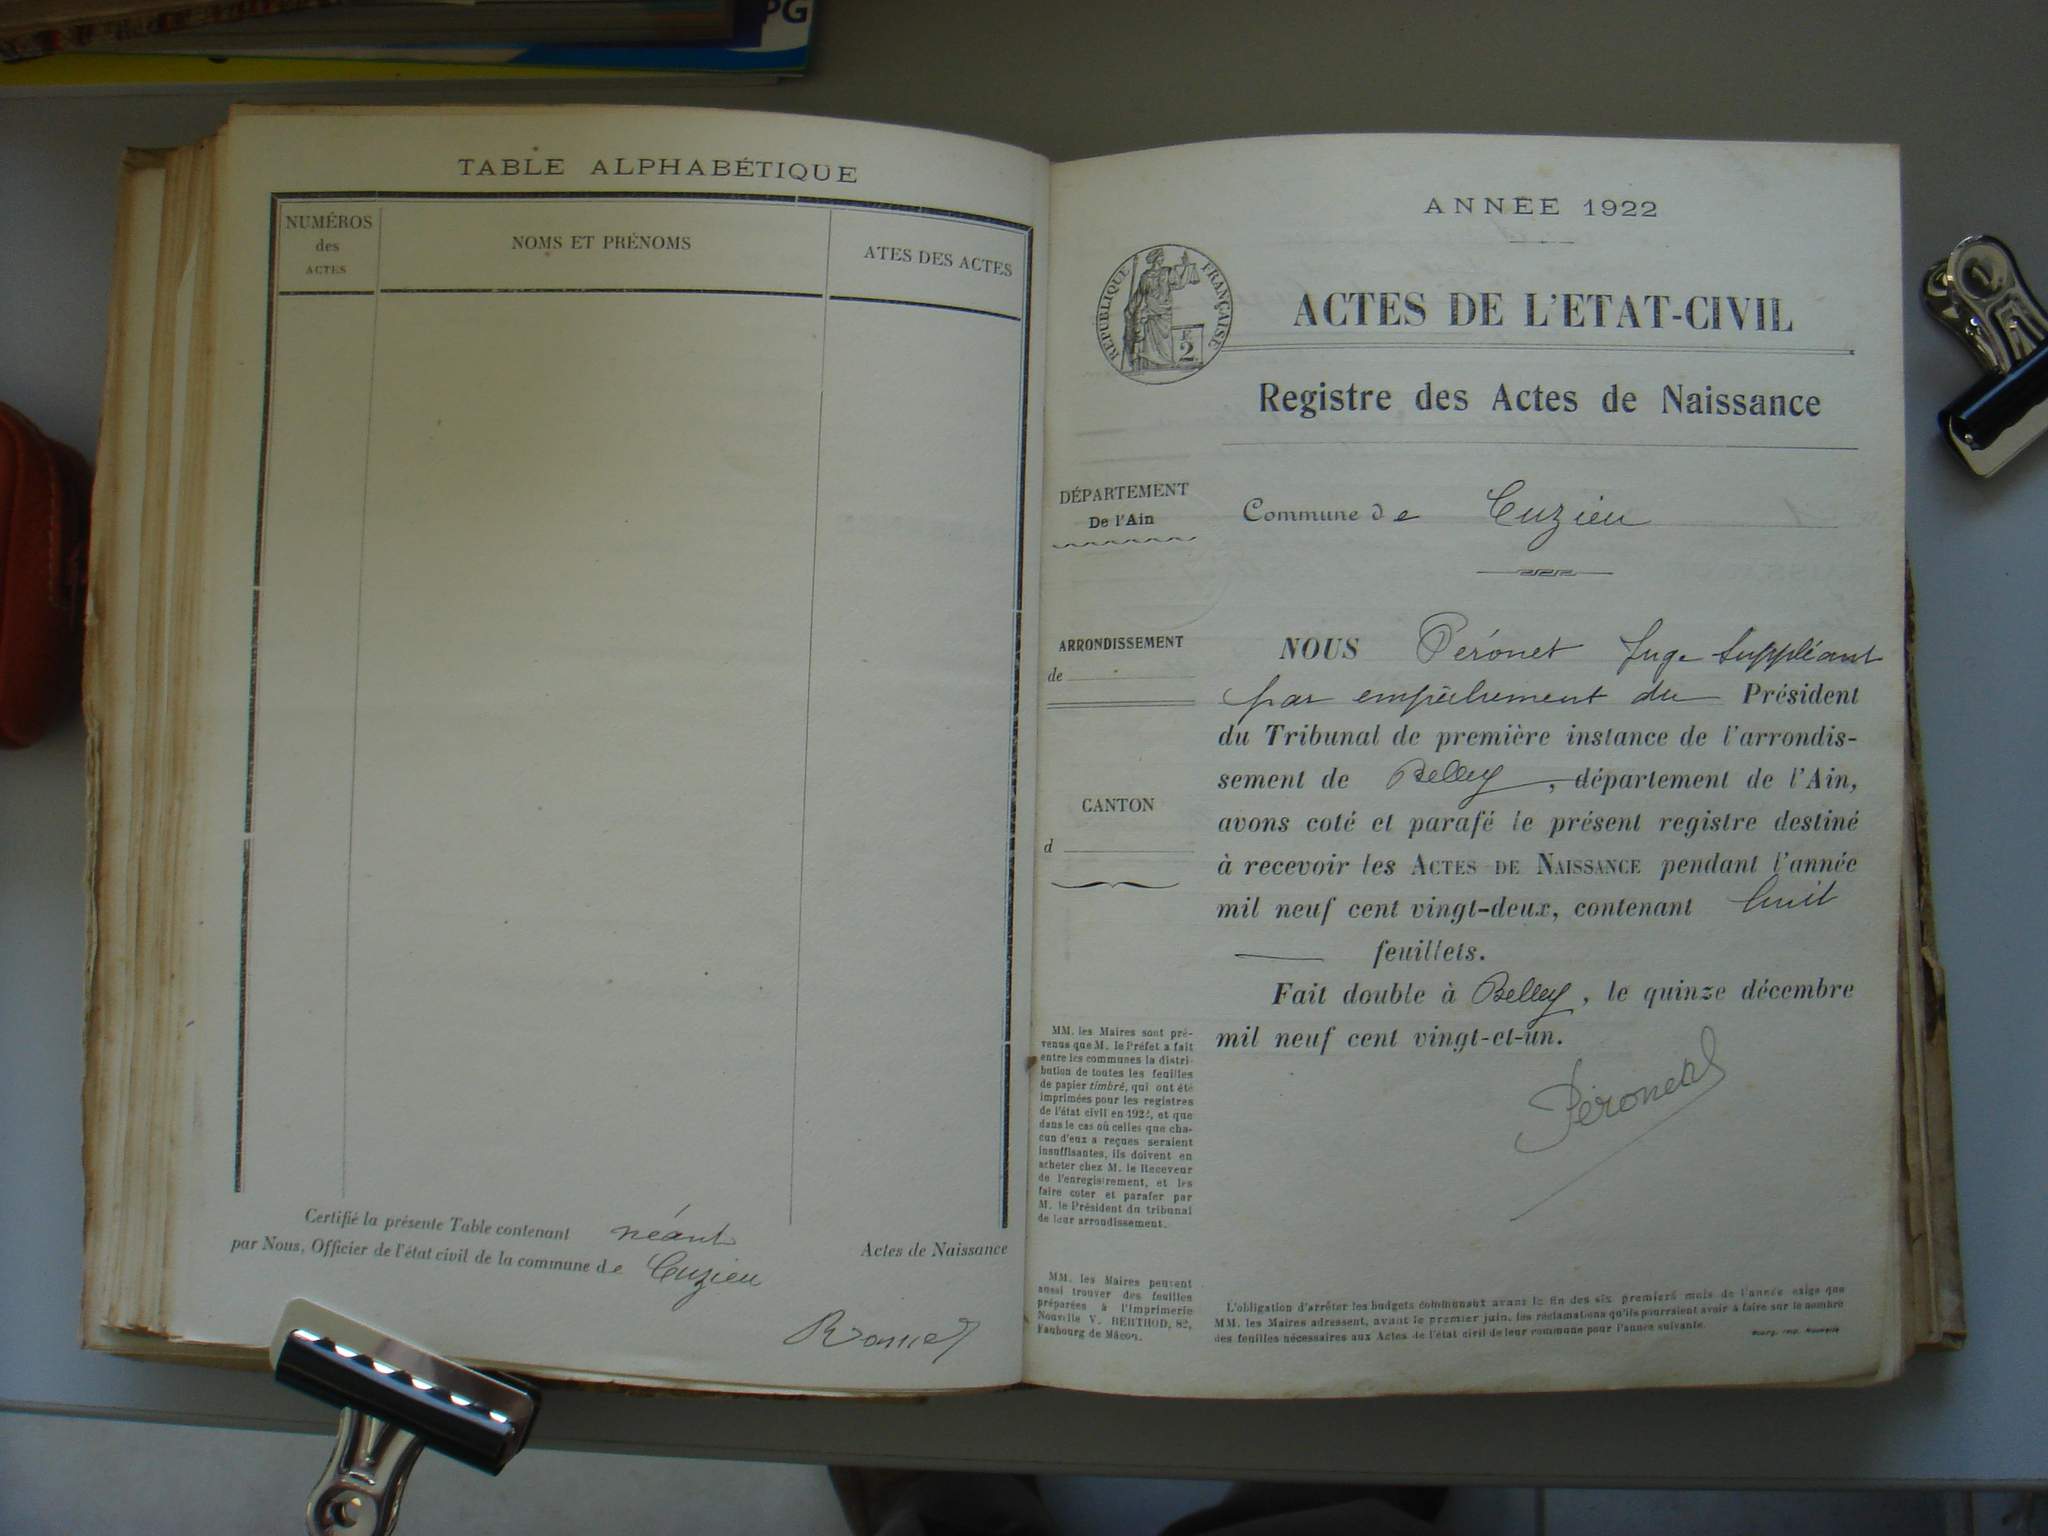 PG
TABLE ALPHABÉTIQUE
NUMÉROS
des
ACTES
NOMS ET PRÉNOMS
ATES DES ACTES
Certifié la présente Table contenant néant Actes de Naissance
par Nous, Officier de l'état civil de la commune de Cuzieu
ANNÉE 1922
RÉPUBLIQUE FRANÇAISE
2
ACTES DE L'ETAT-CIVIL
Registre des Actes de Naissance
DÉPARTEMENT
De l'Ain
Commune de Cuzieu
ARRONDISSEMENT
de
CANTON
d
MM. les Maires sont pré-
venus que M. le Préfet a fait
entre les communes la distri-
bution de toutes les feuilles
de papier timbré, qui ont été
imprimées pour les registres
de l'état civil en 1922, et que
dans le cas où celles que cha-
cun d'eux a reçues seraient
insuffisantes, ils doivent en
acheter chez M. le Receveur
de l'enregistrement, et les
faire coter et parafer par
M. le Président du tribunal
de leur arrondissement.
MM. les Maires peuvent
aussi trouver des feuilles
préparées à l'Imprimerie
Nouvelle V. BERTHOD, 82,
Faubourg de Mâcon.
NOUS Péronet Juge Suppléant
par empêchement du Président
du Tribunal de première instance de l'arrondis-
sement de Belley, département de l'Ain,
avons coté et parafé le présent registre destiné
à recevoir les ACTES DE NAISSANCE pendant l'année
mil neuf cent vingt-deux, contenant huit
feuillets.
Fait double à Belley, le quinze décembre
mil neuf cent vingt-et-un.
Péronet
L'obligation d'arrêter les budgets communaux avant la fin des six premiers mois de l'année exige que
MM. les Maires adressent, avant le premier juin, les réclamations qu'ils pourraient avoir à faire sur le nombre
des feuilles nécessaires aux Actes de l'état civil de leur commune pour l'année suivante.
Bourg, Imp. Nouvelle